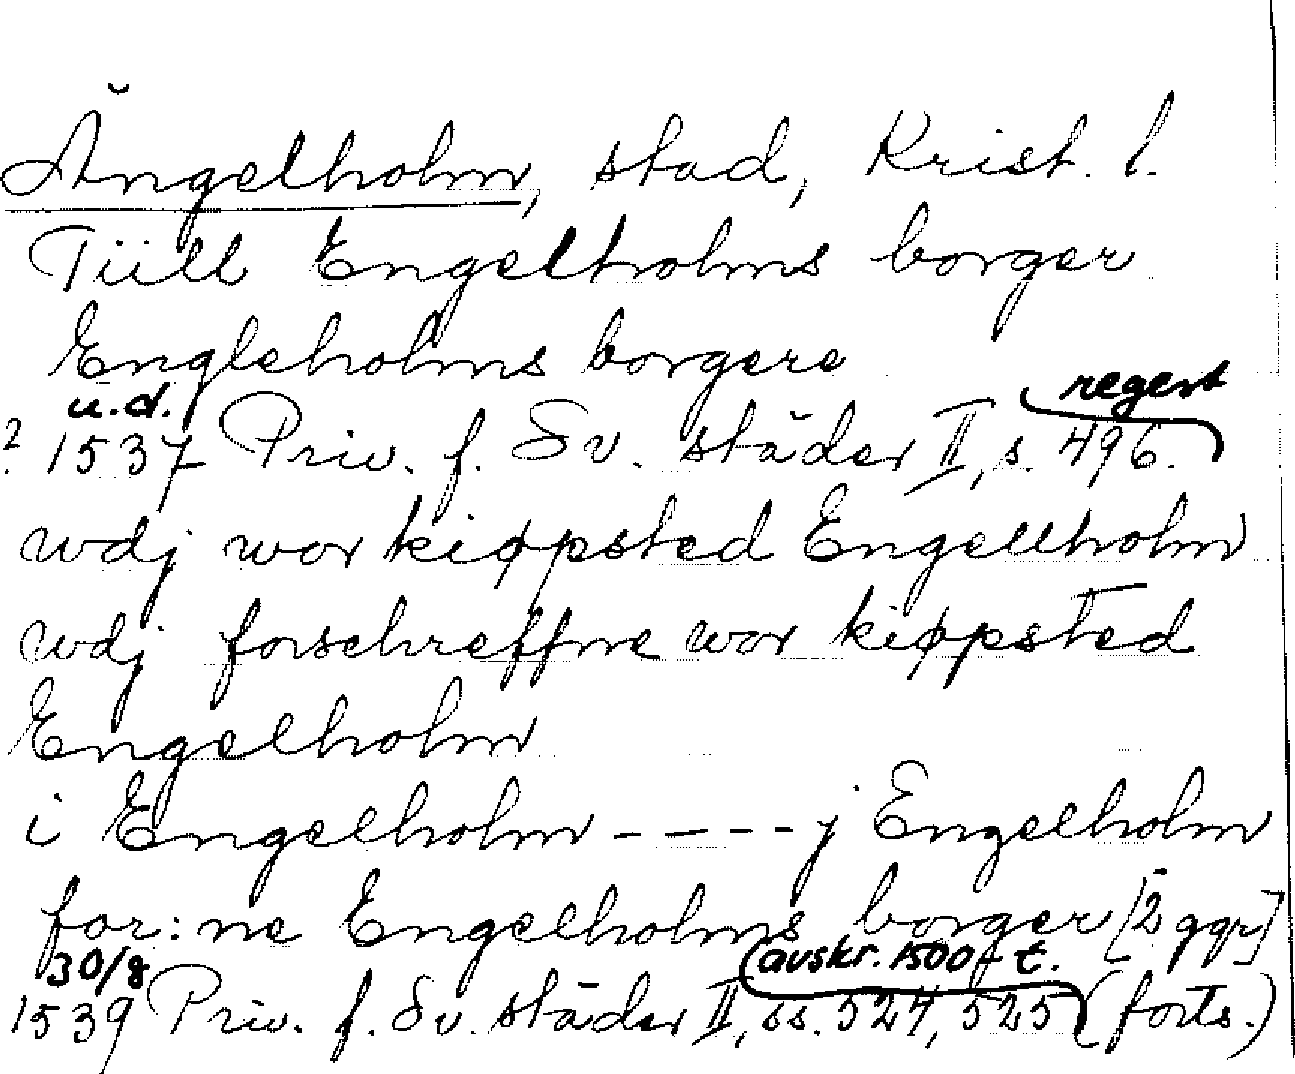 Ängelholm, stad, Krist. l.
Tüll Engelholms borger
Engleholms borgere
u.d. regest
? 1537 Priv. f. Sv. städer II, s. 496.
wdj wor kiøpsted Engellholm
wdj forschreffne wor kiøpsted
Engelholm
i Engelholm ---- j Engelholm
for:ne Engelholms borger [2 ggr]
30/8 (avskr. 1500-t.
1539 Priv. f. Sv. städer II, ss. 524, 525) (forts.)